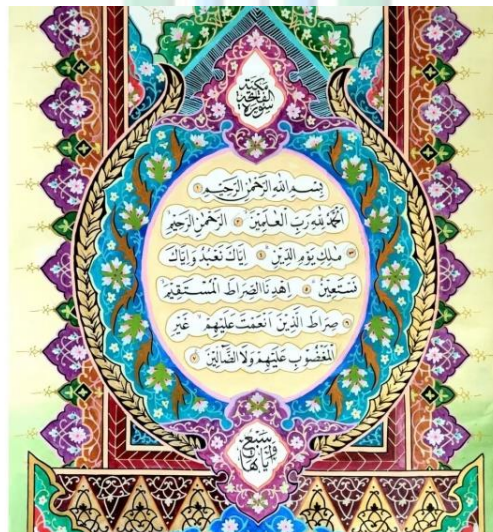 سورة الفاتحة مكية
بِسْمِ اللهِ الرَّحْمٰنِ الرَّحِيْمِ ١
اَلْحَمْدُ لِلّٰهِ رَبِّ الْعٰلَمِيْنَ ٢ الرَّحْمٰنِ الرَّحِيْمِ
٣ مٰلِكِ يَوْمِ الدِّيْنِ ٤ اِيَّاكَ نَعْبُدُ وَاِيَّاكَ
نَسْتَعِيْنُ ٥ اِهْدِنَا الصِّرَاطَ الْمُسْتَقِيْمَ
٦ صِرَاطَ الَّذِيْنَ اَنْعَمْتَ عَلَيْهِمْ غَيْرِ
الْمَغْضُوْبِ عَلَيْهِمْ وَلَا الضَّآلِّيْنَ ٧
وآياتها سبع